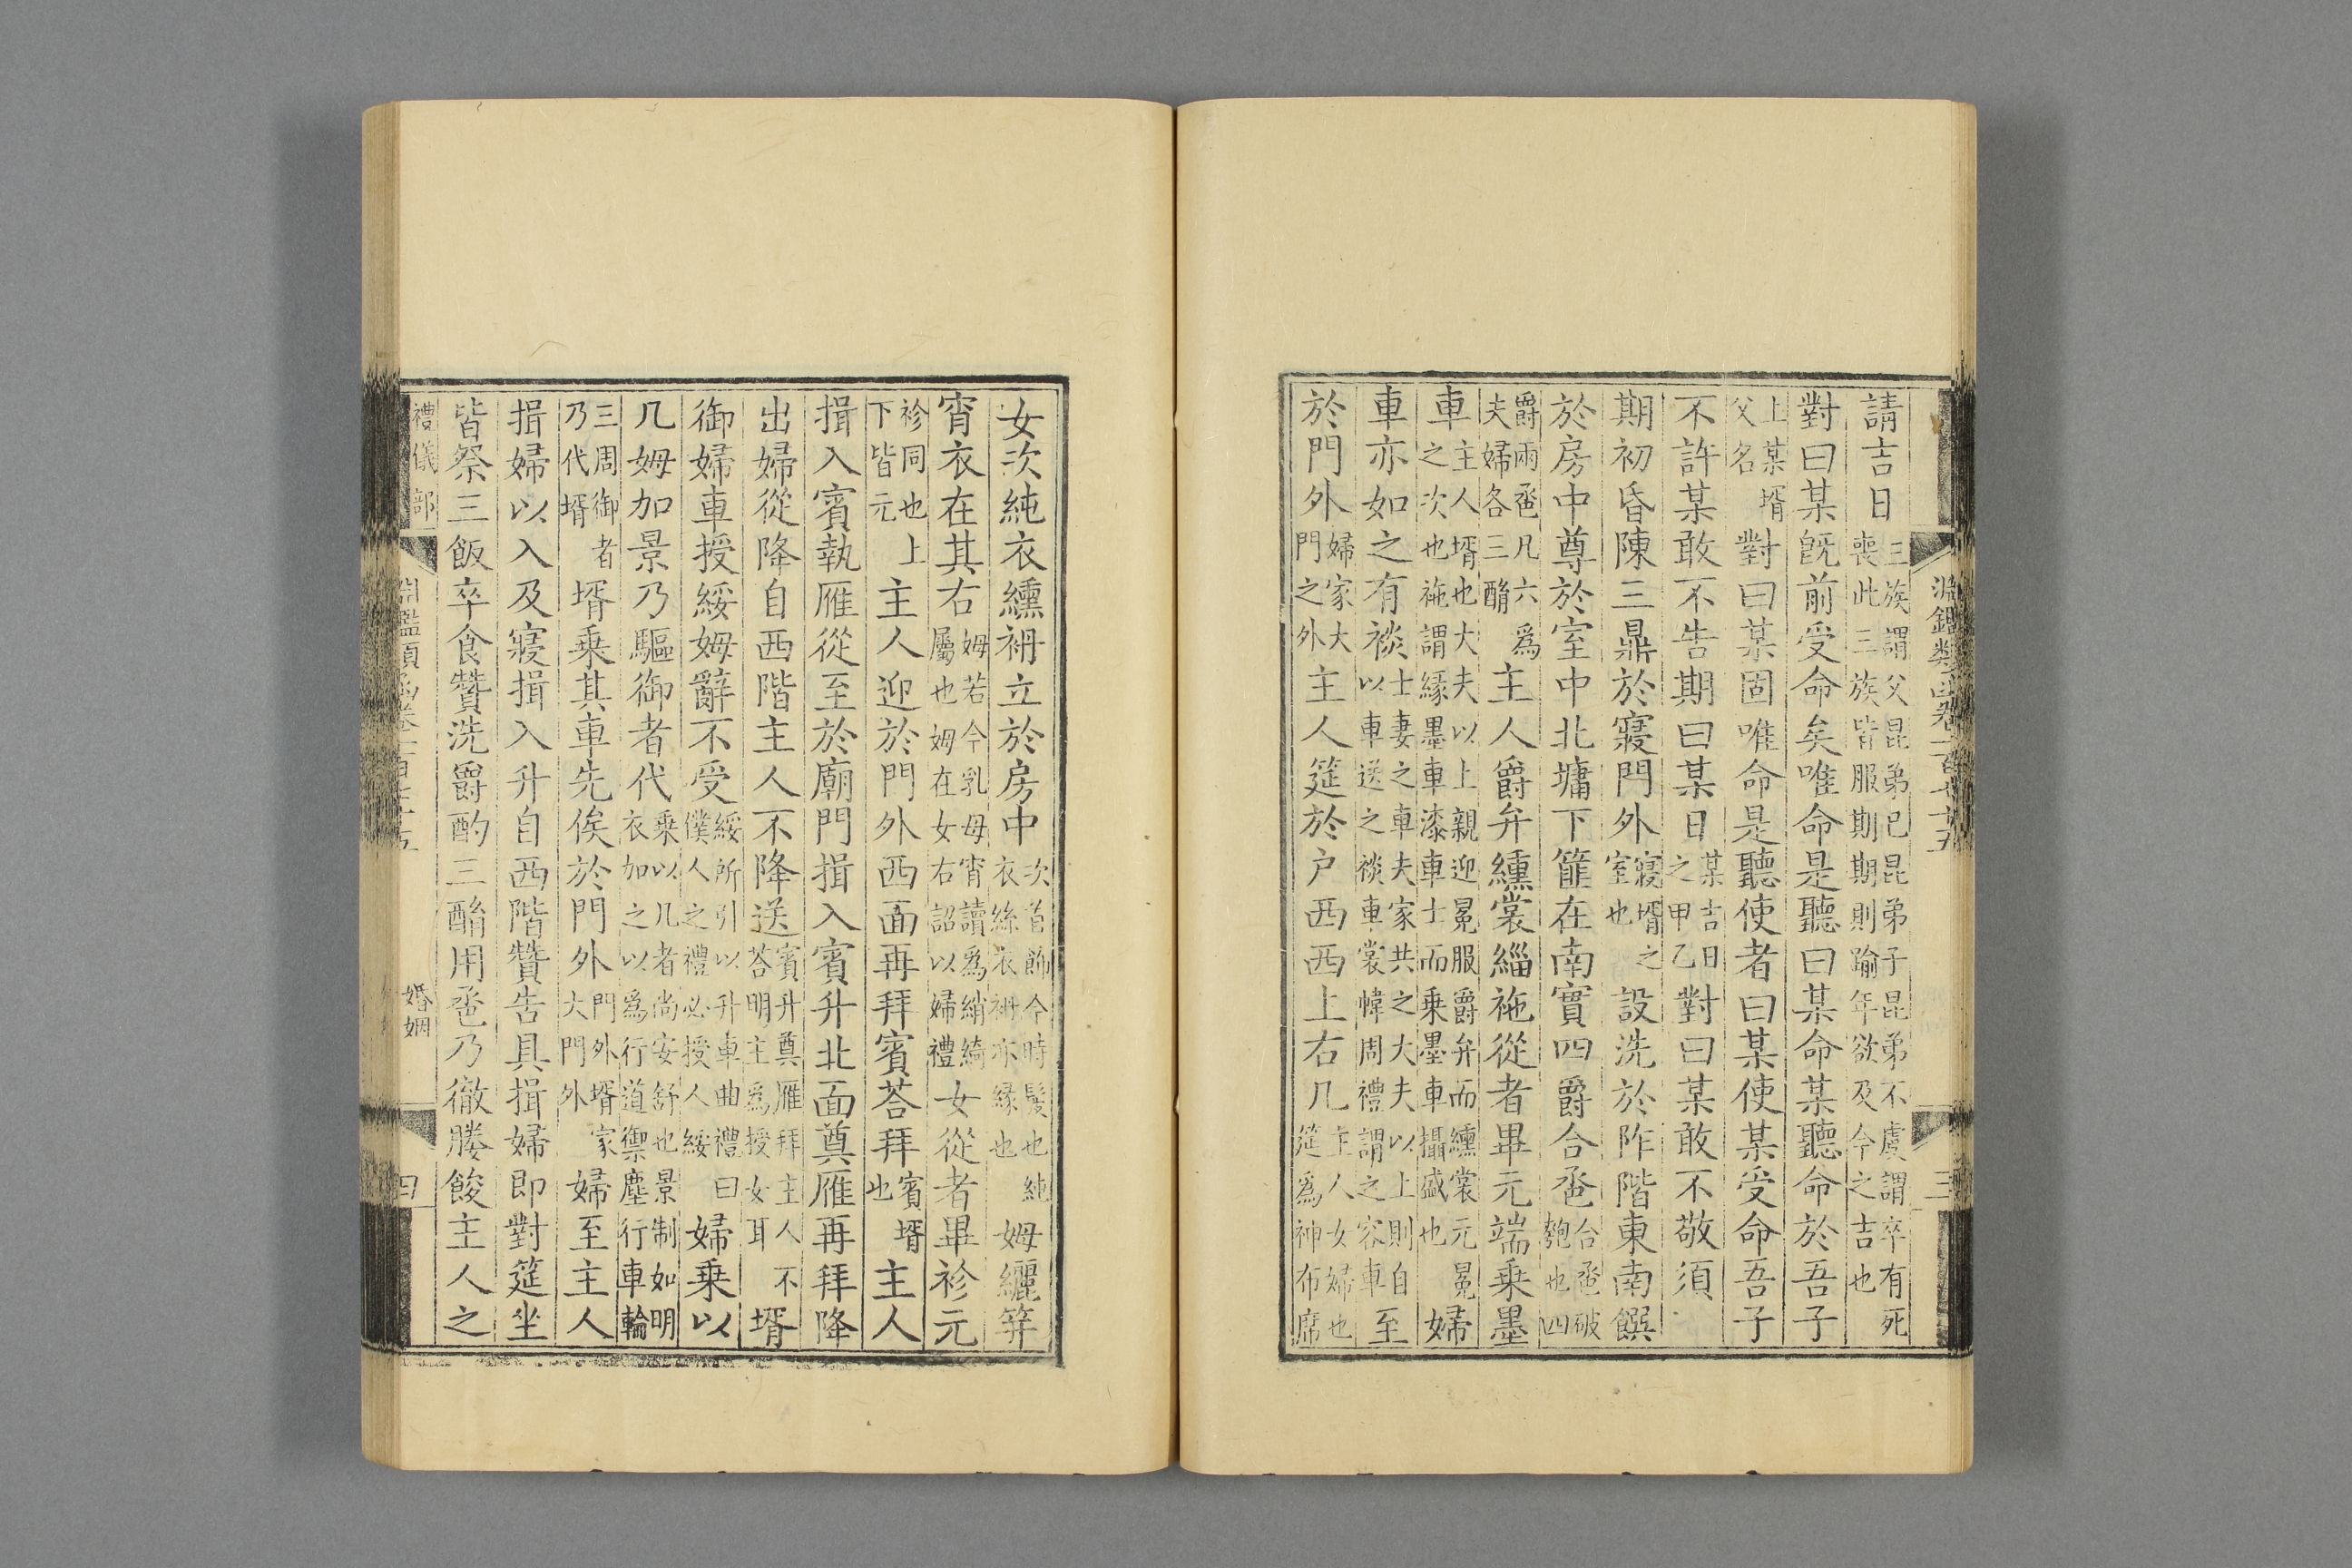 淵鑑類函卷一百七十五 三
請吉日三族謂父昆弟已昆弟子昆弟不虞謂卒有死喪此三族皆服期期則踰年欲及今之吉也
對曰某旣前受命矣唯命是聽曰某命某聽命於吾子
上某壻父名對曰某固唯命是聽使者曰某使某受命吾子
不許某敢不告期曰某日某吉日之甲乙對曰某敢不敬須
期初昏陳三鼎於寢門外寢壻之室也設洗於阼階東南饌
於房中尊於室中北墉下篚在南實四爵合巹合巹破匏也四
爵兩巹凡六爲夫婦各三酳主人爵弁纁裳緇袘從者畢元端乗墨
車主人壻也大夫以上親迎冕服爵弁而纁裳元冕之次也袘謂縁墨車漆車士而乗墨車攝盛也婦
車亦如之有裧士妻之車夫家共之大夫以上則自以車送之裧車裳幃周禮謂之容車至
於門外婦家大門之外主人筵於户西西上右几主人女婦也筵爲神布席
女次純衣纁袡立於房中次首飾今時髲也純衣絲衣袡亦縁也姆纚笄
宵衣在其右姆若今乳母宵讀爲綃綺屬也姆在女右詔以婦禮女從者畢袗元
袗同也上下皆元主人迎於門外西面再拜賓荅拜賓壻也主人
揖入賓執雁從至於廟門揖入賓升北面奠雁再拜降
出婦從降自西階主人不降送賓升奠雁拜主人不荅明主爲授女耳壻
御婦車授綏姆辭不受綏所引以升車曲禮曰僕人之禮必授人綏婦乗以
几姆加景乃驅御者代乗以几者尚安舒也景制如明衣加之以爲行道禦塵行車輪
三周御者乃代壻壻乗其車先俟於門外門外壻家大門外婦至主人
揖婦以入及寢揖入升自西階贊告具揖婦即對筵坐
皆祭三飯卒食贊洗爵酌三酳用巹乃徹媵餕主人之
禮儀部 淵鑑類函卷一百七十五 婚姻 四